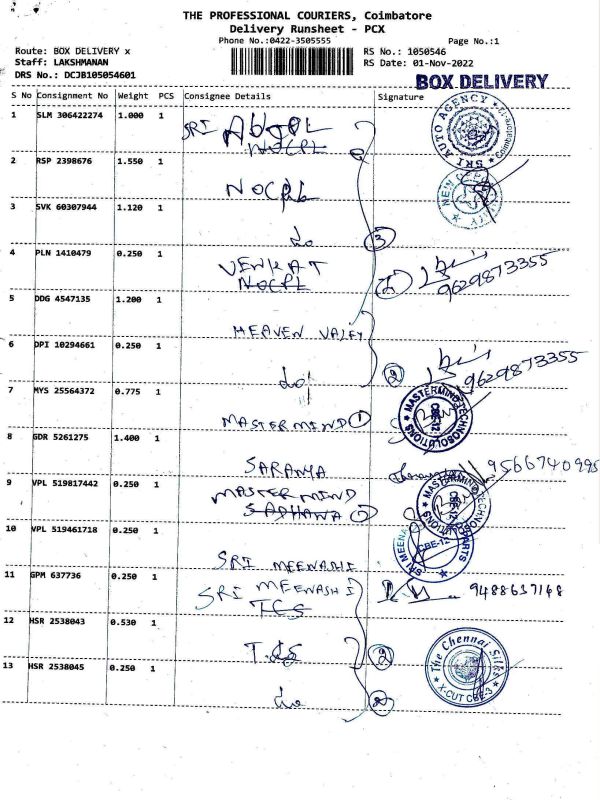 THE PROFESSIONAL COURIERS, Coimbatore
Delivery Runsheet - PCX
Phone No.:0422-3505555
Page No.:1
Route: BOX DELIVERY x
RS No.: 1050546
Staff: LAKSHMANAN
RS Date: 01-Nov-2022
DRS No.: DCJB105054601
BOX DELIVERY
S No Consignment No Weight PCS Consignee Details Signature
1 SLM 306422274 1.000 1
SRI
SRI AUTO AGENCY
2 RSP 2398676 1.550 1
NOCPL
3 SVK 60307944 1.120 1
do 3
4 PLN 1410479 0.250 1
VENKAT
NOCPL
9629873355
5 DDG 4547135 1.200 1
HEAVEN VALEY
6 DPI 10294661 0.250 1
do 2
9629873355
7 MYS 25564372 0.775 1
MASTERMIND 1
MASTERMIND TECHNOSOLUTIONS CBE-12
8 GDR 5261275 1.400 1
SARANYA
9566740995
9 VPL 519817442 0.250 1
MASTERMIND
SADHANA
MASTERMIND CBE-12
10 VPL 519461718 0.250 1
SRI MEENASHI
SRI MEENA CBE-12
11 GPM 637736 0.250 1
SRI MEENASHI
TCS
9488637168
12 HSR 2538043 0.530 1
T.CS 2
The Chennai Silks
X-CUT CBE-3
13 HSR 2538045 0.250 1
do 2